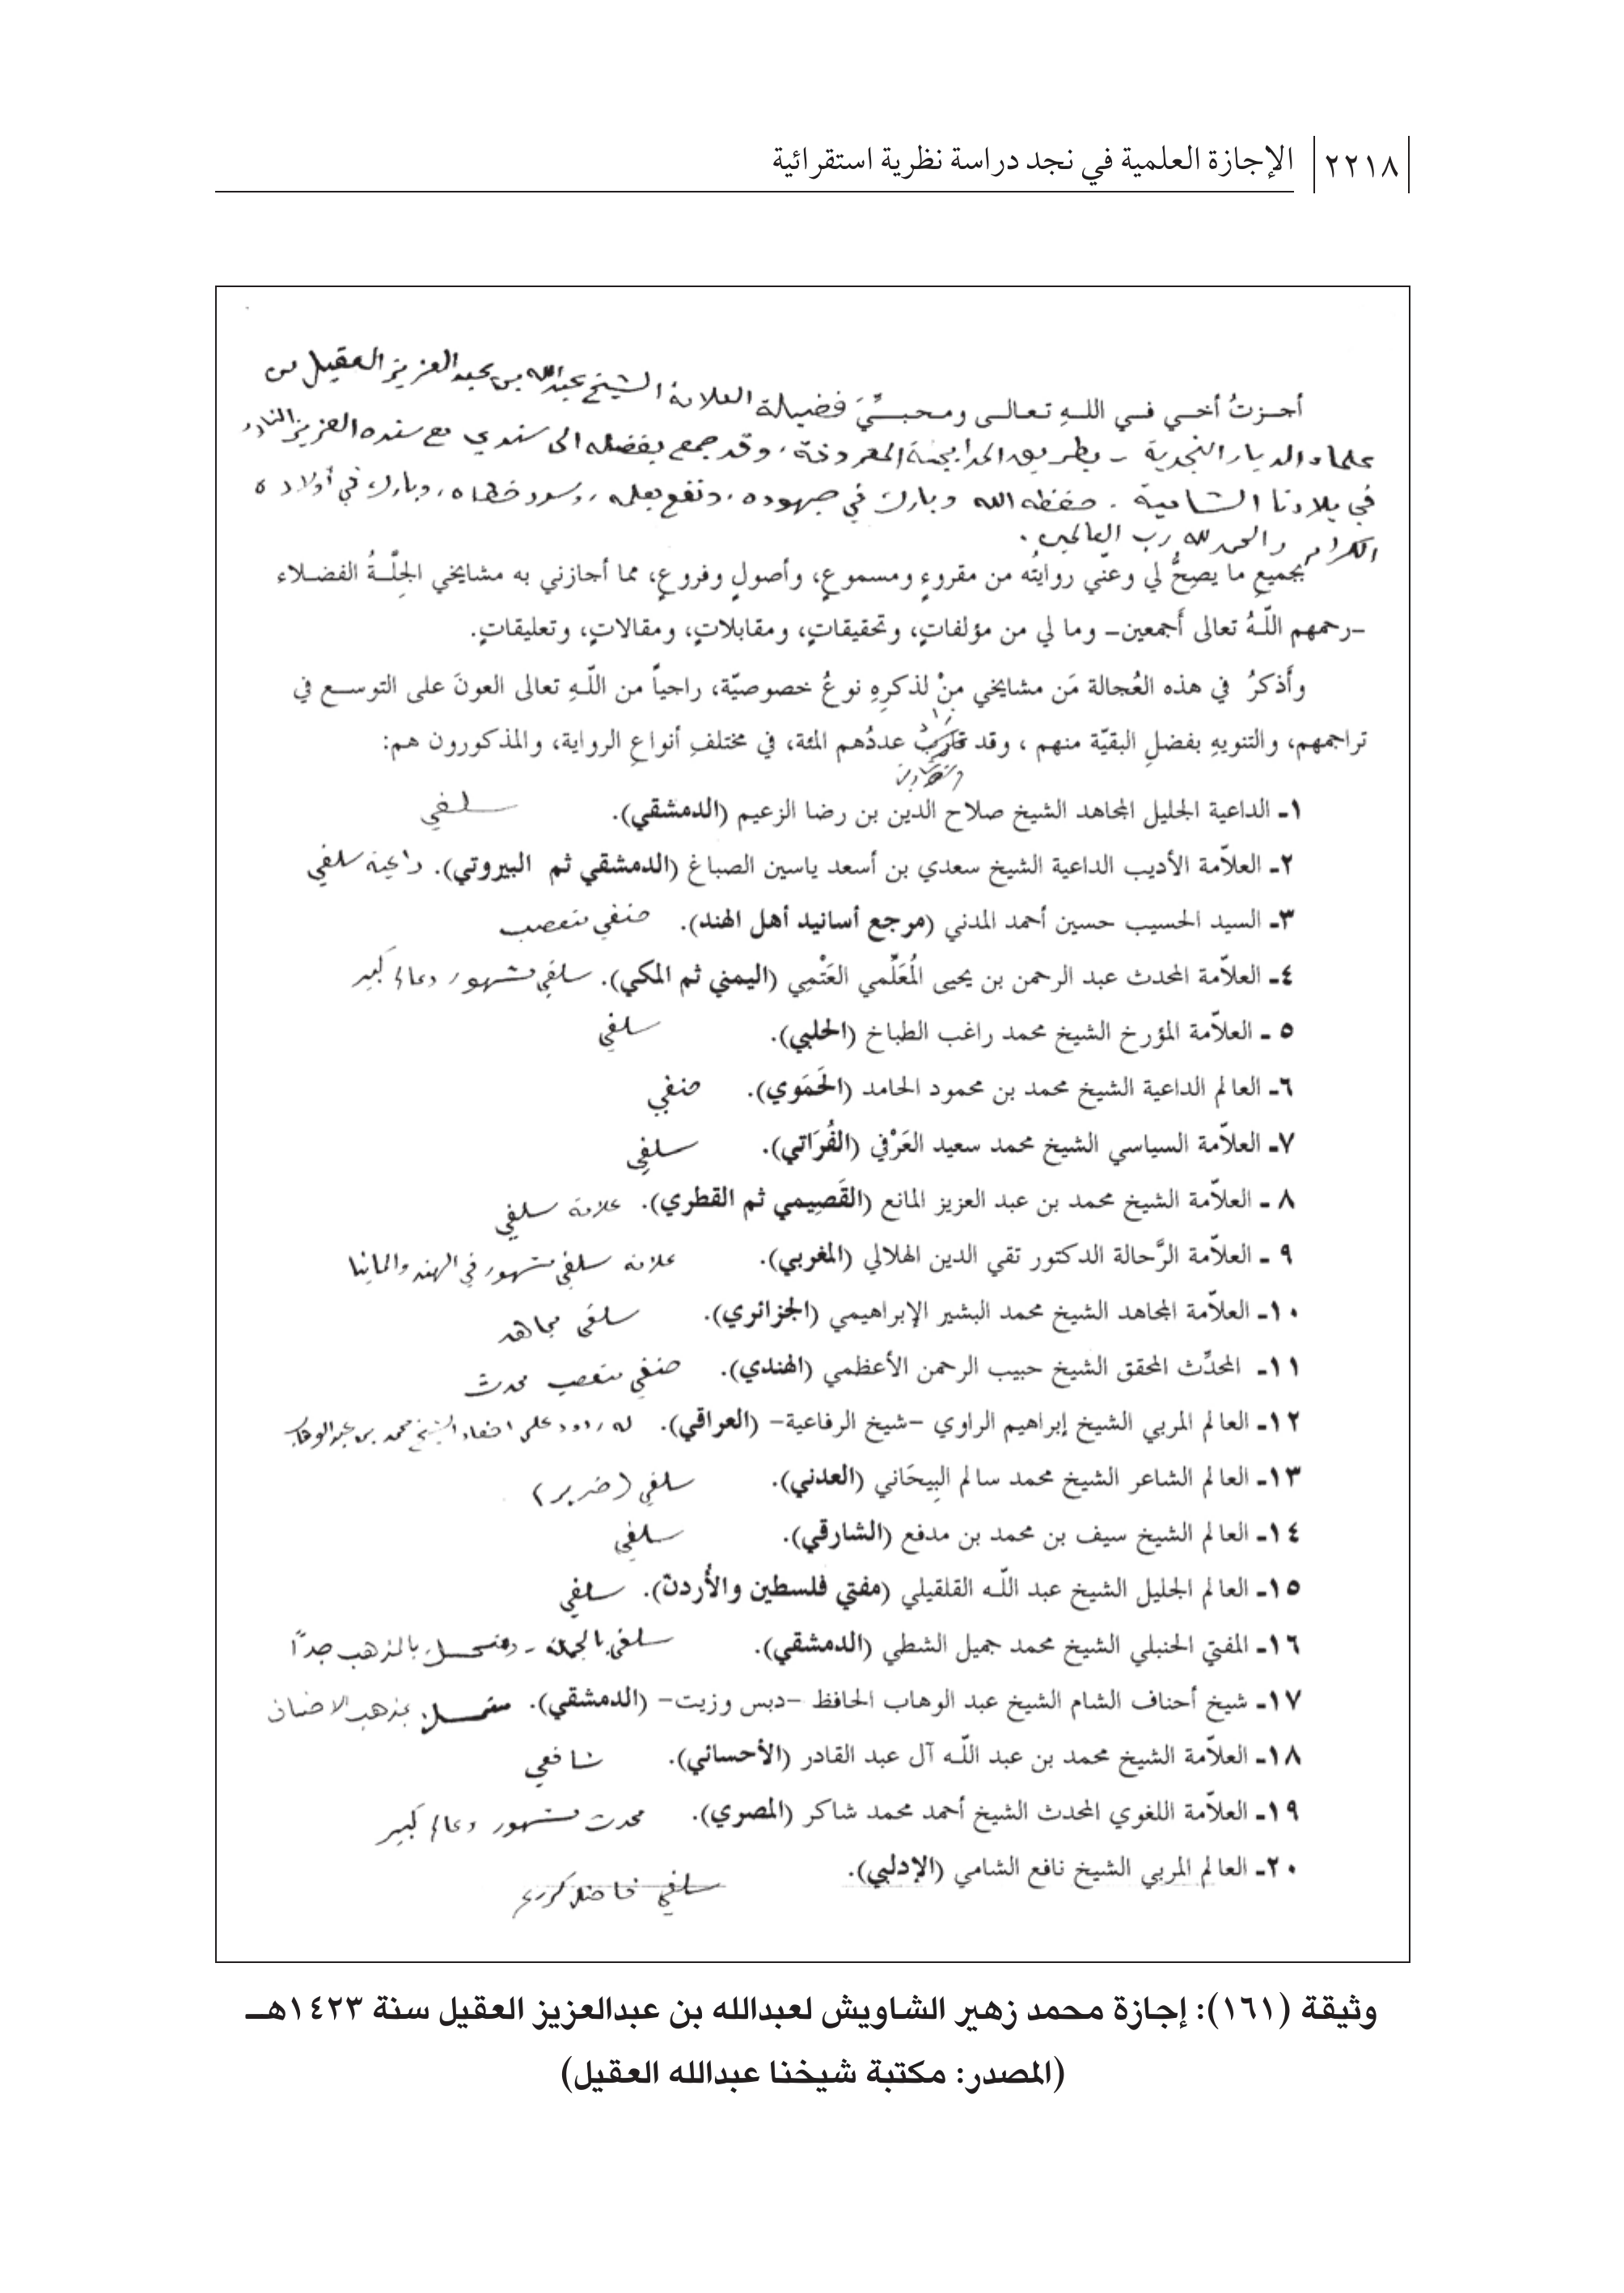 ٢٢١٨ الإجازة العلمية في نجد دراسة نظرية استقرائية
أجزتُ أخي في اللهِ تعالى ومحبيَّ فضيلة العلامة الشيخ عبدالله بن عبد العزيز العقيل من
علماء الديار النجدية - بطريق المعروفة، وقد جمع بفضله الى سندي مع سنده العزيز النادر
في بلادنا الشامية . حفظه الله وبارك في جهوده، ونفع بعلمه، وسدد خطاه، وبارك في أولاده
الكرام والحمد لله رب العالمين.
بجميعِ ما يصِحُّ لي وعنّي روايتُه من مقروءٍ ومسموعٍ، وأصولٍ وفروعٍ، مما أجازني به مشايخي الجِلَّةُ الفضلاء
-رحمهم اللّهُ تعالى أَجمعين- وما لي من مؤلفاتٍ، وتحقيقاتٍ، ومقابلاتٍ، ومقالاتٍ، وتعليقاتٍ.
وأَذكرُ في هذه العُجالة مَن مشايخي مِنْ لذكرِهِ نوعُ خصوصيّة، راجياً من اللّهِ تعالى العونَ على التوسع في
تراجمهم، والتنويهِ بفضلِ البقيّة منهم ، وقد عددُهم المئة، في مختلفِ أنواعِ الرواية، والمذكورون هم:
١ـ الداعية الجليل المجاهد الشيخ صلاح الدين بن رضا الزعيم (الدمشقي). سلفي
٢ـ العلاّمة الأديب الداعية الشيخ سعدي بن أسعد ياسين الصباغ (الدمشقي ثم البيروتي). داعية سلفي
٣ـ السيد الحسيب حسين أحمد المدني (مرجع أسانيد أهل الهند). حنفي متعصب
٤ـ العلاّمة المحدث عبد الرحمن بن يحيى المُعَلِّمي العَتْمِي (اليمني ثم المكي). سلفي مشهور وعالم كبير
٥ ـ العلاّمة المؤرخ الشيخ محمد راغب الطباخ (الحلبي). سلفي
٦ـ العالم الداعية الشيخ محمد بن محمود الحامد (الحَمَوي). حنفي
٧ـ العلاّمة السياسي الشيخ محمد سعيد العَرْفي (الفُرَاتي). سلفي
٨ ـ العلاّمة الشيخ محمد بن عبد العزيز المانع (القَصِيمي ثم القطري). علامة سلفي
٩ ـ العلاّمة الرَّحالة الدكتور تقي الدين الهلالي (المغربي). علامة سلفي مشهور في الهند والمانيا
١٠ـ العلاّمة المجاهد الشيخ محمد البشير الإبراهيمي (الجزائري). سلفي مجاهد
١١ـ المحدِّث المحقق الشيخ حبيب الرحمن الأعظمي (الهندي). حنفي متعصب محدث
١٢ـ العالم المربي الشيخ إبراهيم الراوي -شيخ الرفاعية- (العراقي). له ردود على احفاد الشيخ محمد بن عبد الوهاب
١٣ـ العالم الشاعر الشيخ محمد سالم البِيحَاني (العدني). سلفي (ضرير)
١٤ـ العالم الشيخ سيف بن محمد بن مدفع (الشارقي). سلفي
١٥ـ العالم الجليل الشيخ عبد اللّه القلقيلي (مفتي فلسطين والأُردن). سلفي
١٦ـ المفتي الحنبلي الشيخ محمد جميل الشطي (الدمشقي). سلفي بالجملة - ومتمسك بالمذهب جداً
١٧ـ شيخ أحناف الشام الشيخ عبد الوهاب الحافظ -دبس وزيت- (الدمشقي). متمسك بمذهب الاحناف
١٨ـ العلاّمة الشيخ محمد بن عبد اللّه آل عبد القادر (الأحسائي). شافعي
١٩ـ العلاّمة اللغوي المحدث الشيخ أحمد محمد شاكر (المصري). محدث مشهور وعالم كبير
٢٠ـ العالم المربي الشيخ نافع الشامي (الإدلبي). سلفي فاضل كريم
وثيقة (١٦١): إجازة محمد زهير الشاويش لعبدالله بن عبدالعزيز العقيل سنة ١٤٢٣هـ
(المصدر: مكتبة شيخنا عبدالله العقيل)